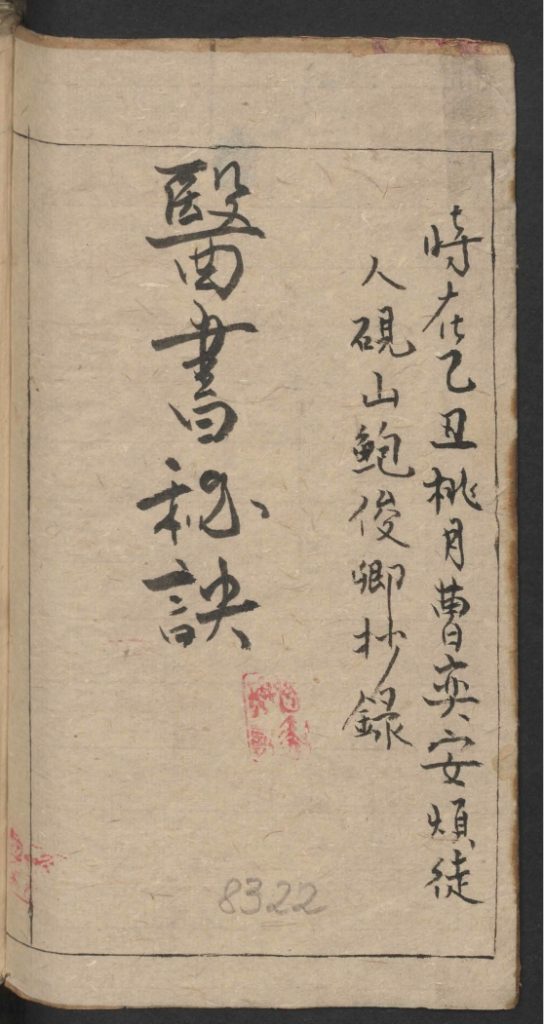 時在乙丑桃月曹奕安煩徒
人硯山鮑俊卿抄錄
醫書秘訣
8322